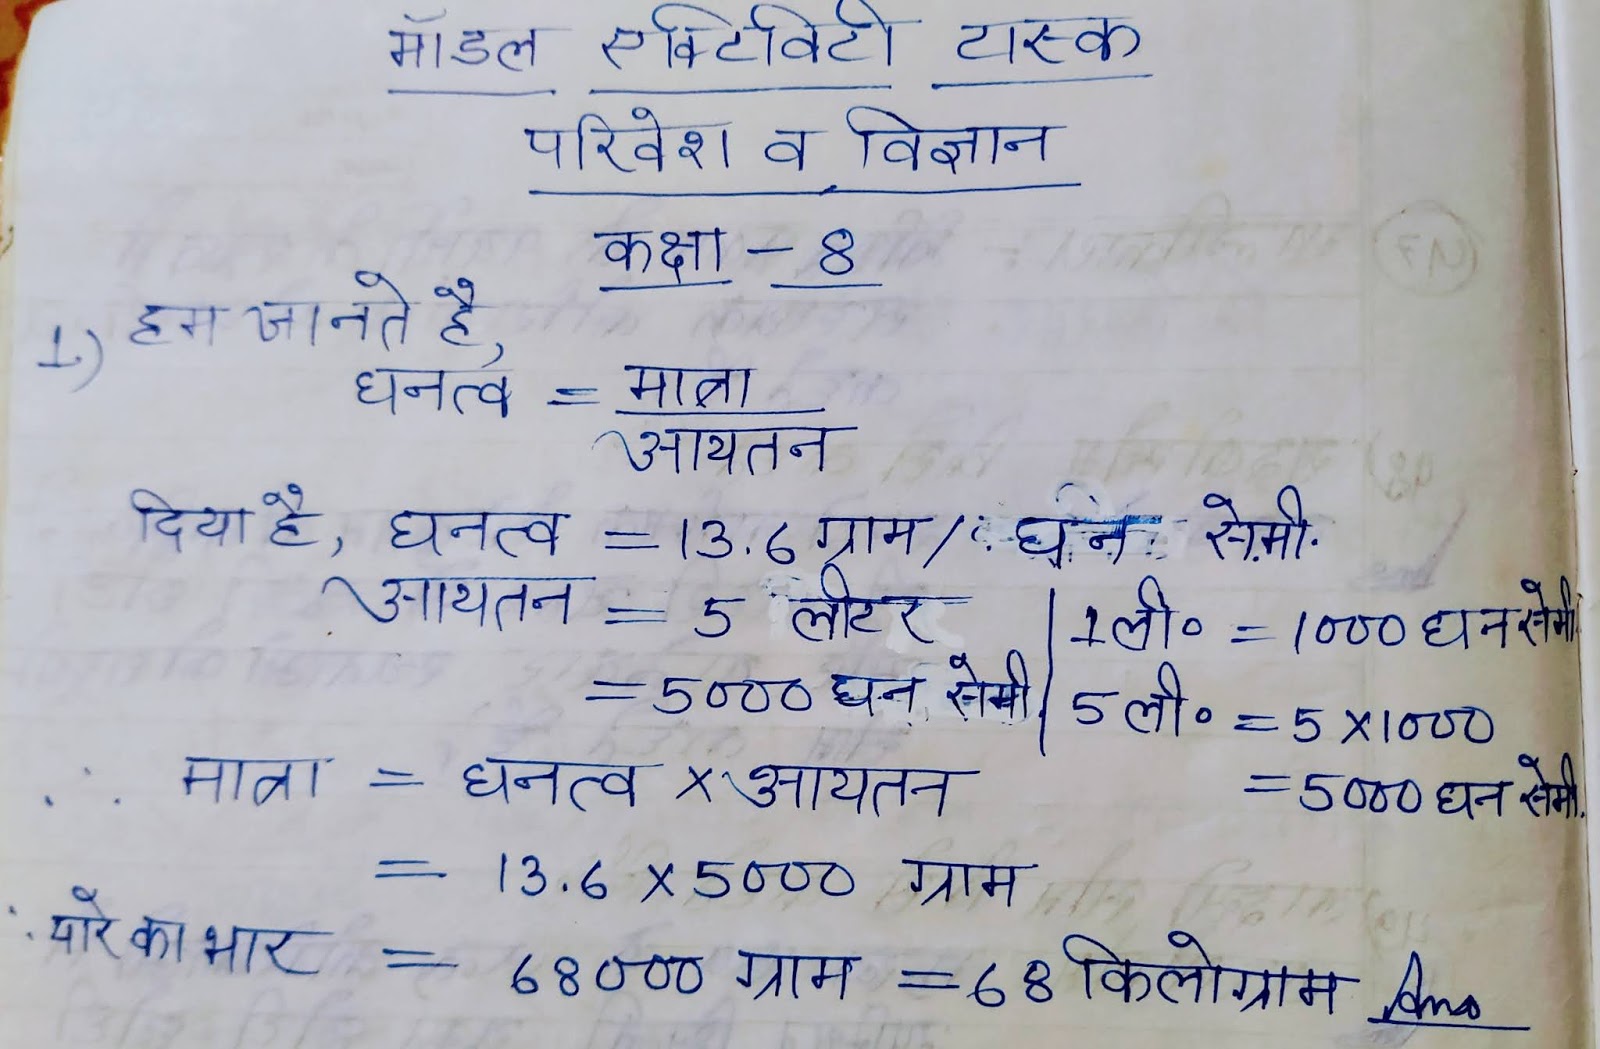 मॉडल एक्टिविटी टास्क
परिवेश व विज्ञान
कक्षा - 8
1.) हम जानते है,
घनत्व = मात्रा
आयतन
दिया है, घनत्व = 13.6 ग्राम / घन सेमी.
आयतन = 5 लीटर
= 5000 घन सेमी
1 ली० = 1000 घन सेमी
5 ली० = 5 x 1000
= 5000 घन सेमी.
∴ मात्रा = घनत्व x आयतन
= 13.6 x 5000 ग्राम
∴ पारे का भार = 68000 ग्राम = 68 किलोग्राम Ans